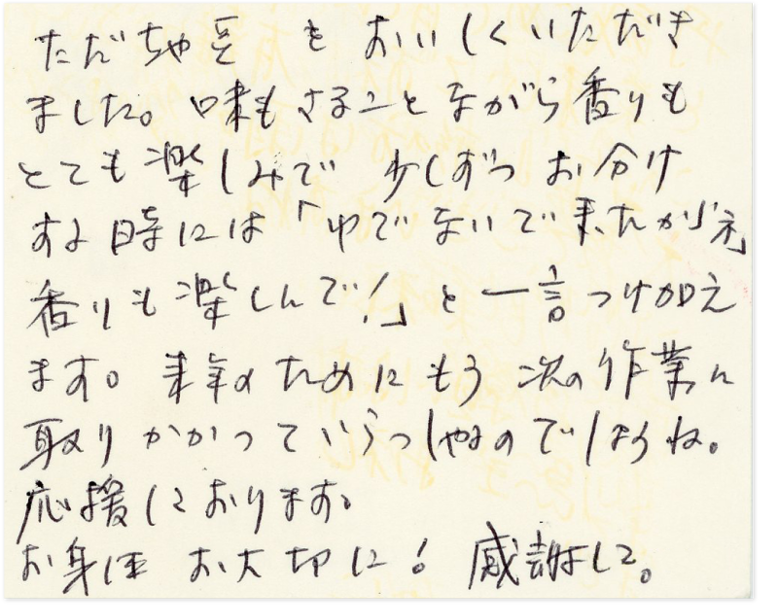 ただちゃ豆 を おいしくいただき
ました。味もさることながら香りも
とても楽しみで 少しずつ お分け
する時には「ゆでないで
香りも楽しんで!」と一言つけ加え
ます。来年のためにもう 次の作業に
取りかかっていらっしゃるのでしょうね。
応援しております。
お身体 お大切に! 感謝して。